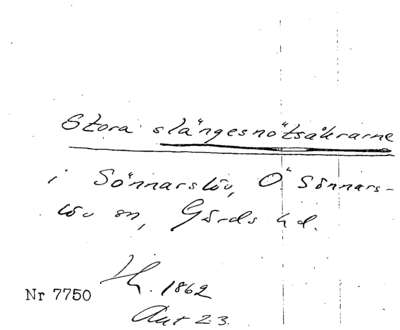 Stora slängesnötsåkrarne
i Sönnarslöv, Ö Sönnars-
löv sn, Gärds hd.
Th. 1862
Nr 7750
Akt 23.